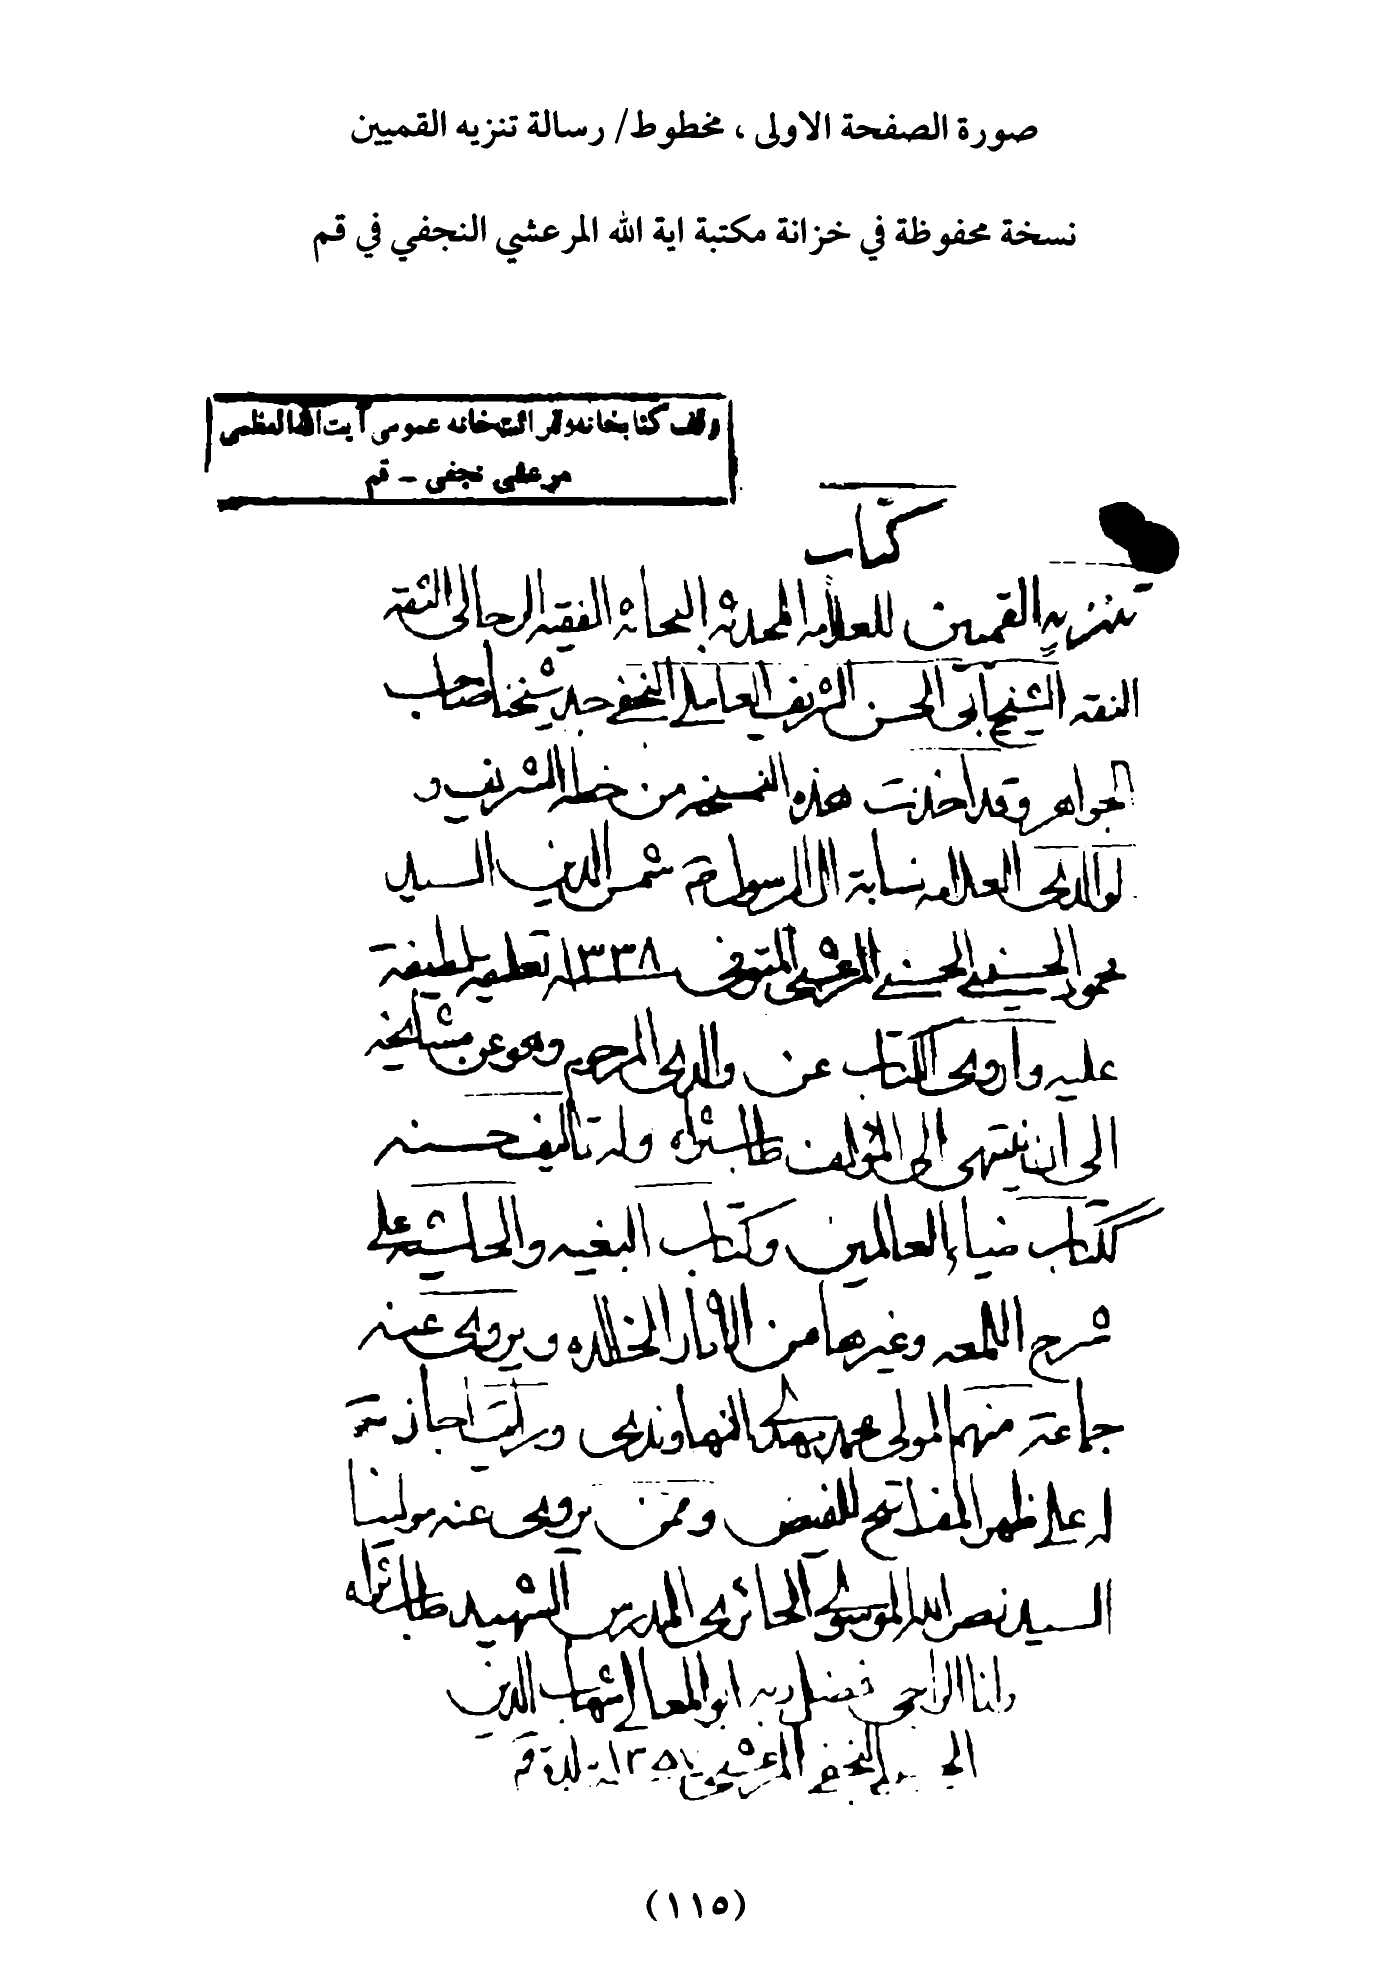 صورة الصفحة الاولى ، مخطوط/ رسالة تنزيه القميين
نسخة محفوظة في خزانة مكتبة اية الله المرعشي النجفي في قم
وقف كتابخانه وقرائتخانه عمومى آيت الله العظمى
مرعشى نجفى - قم
كتاب
تنزيه القميين للعلامه المحدث البحاثه الفقيه الرجالى الثقه
الثقه الشيخ ابى الحسن الشريف العاملي النجفي جد شيخنا صاحب
الجواهر وقد اخذت هذه النسخه من خطه الشريف و
لوالدى العلامه نسابة ال الرسول ص شمس الدين السيد
محمود الحسيني الحسني المرعشي المتوفى سنه ١٣٣٨ تعليقه لطيفة
عليه واروى الكتاب عن والدى المرحوم وهو عن مشايخه
الى ان ينتهى الى المؤلف طاب ثراه وله تاليف حسنه
ككتاب ضياء العالمين وكتاب البغيه والحاشيه على
شرح اللمعه وغيرها من الاثار الخالده ويروى عنه
جماعة منهم المولى محمد مهدى النهاوندى ورايت اجازته
له على ظهر المفاتيح للفيض وممن يروى عنه مولينا
السيد نصر الله الموسوى الحائرى المدرس الشهيد طاب ثراه
وانا الراجى فضل ربه ابو المعالى شهاب الدين
النجفي المرعشي ببلدة قم
(١١٥)